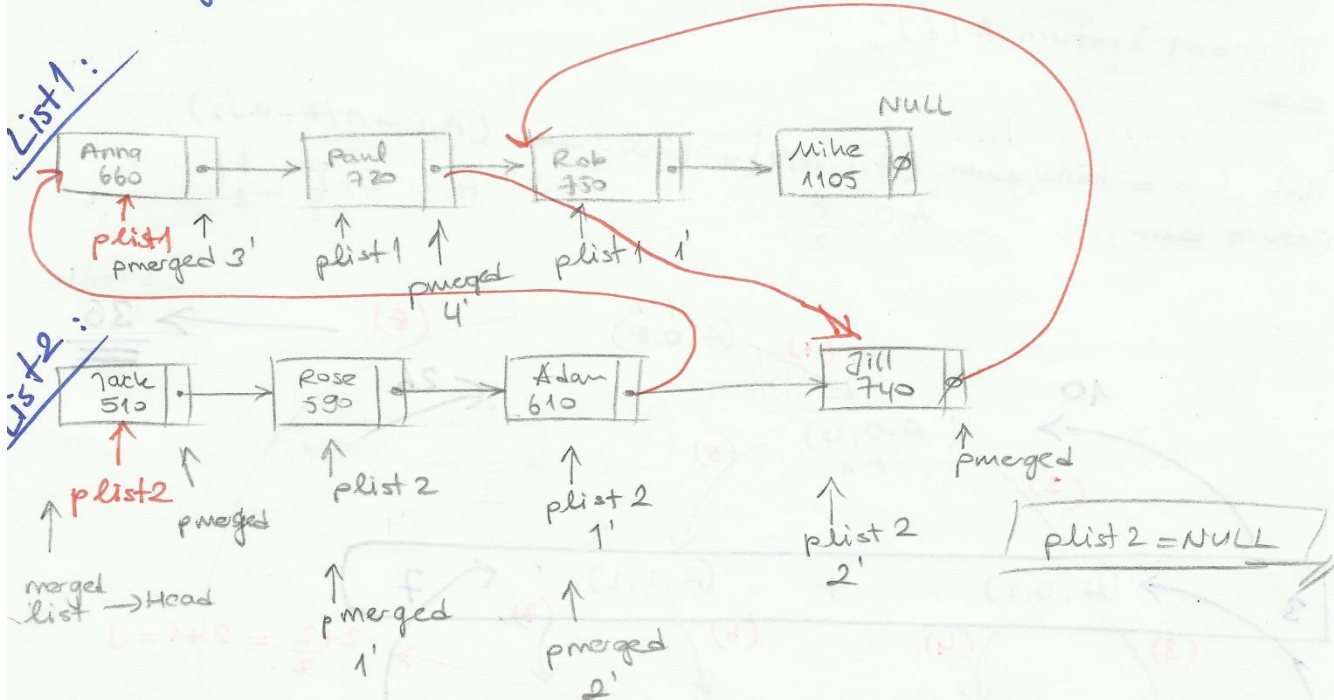 List1:
NULL
Anna
660
Paul
720
Rob
750
Mike
1105 ∅
plist1
pmerged 3'
plist1
pmerged
4'
plist1 1'
List2:
Jack
510
Rose
590
Adam
610
Jill
740 ∅
plist2
pmerged
plist 2
plist 2
1'
plist 2
2'
pmerged
plist 2 = NULL
merged
list → Head
pmerged
1'
pmerged
2'